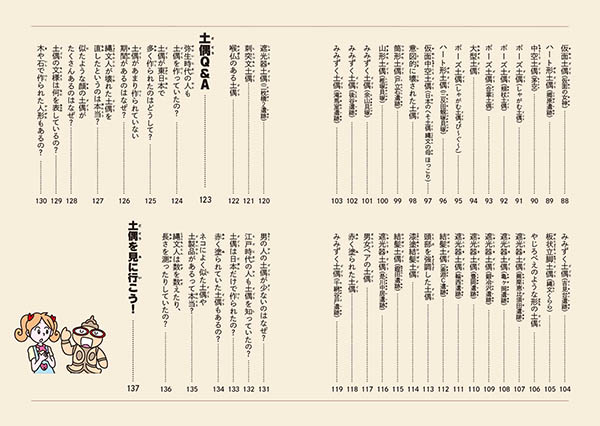 仮面土偶(仮面の女神) 88
ハート形土偶(郷原遺跡) 89
中空土偶(茅空) 90
ポーズ土偶(しゃがむ土偶) 91
ポーズ土偶 92
ポーズ土偶 93
ポーズ土偶(しゃがむ土偶 ぴ~ぐ~) 94
大型土偶 95
ハート形土偶 96
仮面中空土偶(日本のへそ土偶 縄文の母 ほっこり) 97
意図的に壊された土偶 98
筒形土偶 99
山形土偶 100
みみずく土偶 101
みみずく土偶(後谷遺跡) 102
みみずく土偶(滝馬室遺跡) 103
みみずく土偶 104
板状立脚土偶(縄文くらら) 105
やじろべえのような形の土偶 106
遮光器土偶 107
遮光器土偶 108
遮光器土偶(亀ヶ岡遺跡) 109
遮光器土偶 110
遮光器土偶 111
頭部を強調した土偶 112
結髪土偶 113
漆塗結髪土偶 114
結髪土偶 115
遮光器土偶 116
男女ペアの土偶 117
赤く塗られた土偶 118
みみずく土偶 119
遮光器土偶(二枚橋2遺跡) 120
刺突文土偶 121
喉仏のある土偶 122
土偶Q&A 123
弥生時代の人も
土偶を作っていたの? 124
土偶が東日本で
多く作られたのはどうして? 125
土偶があまり作られていない
期間があるのはなぜ? 126
縄文人が壊れた土偶を
直したというのは本当? 127
似たような顔の土偶が
たくさんあるのはなぜ? 128
土偶の文様は何を表しているの? 129
木や石で作られた人形もあるの? 130
男の人の土偶が少ないのはなぜ? 131
江戸時代の人も土偶を知っていたの? 132
土偶は日本だけで作られたの? 133
赤く塗られていた土偶もあるの? 134
ネコによく似た土偶や
土製品があるって本当? 135
縄文人は数を数えたり、
長さを測ったりしていたの? 136
土偶を見に行こう! 137